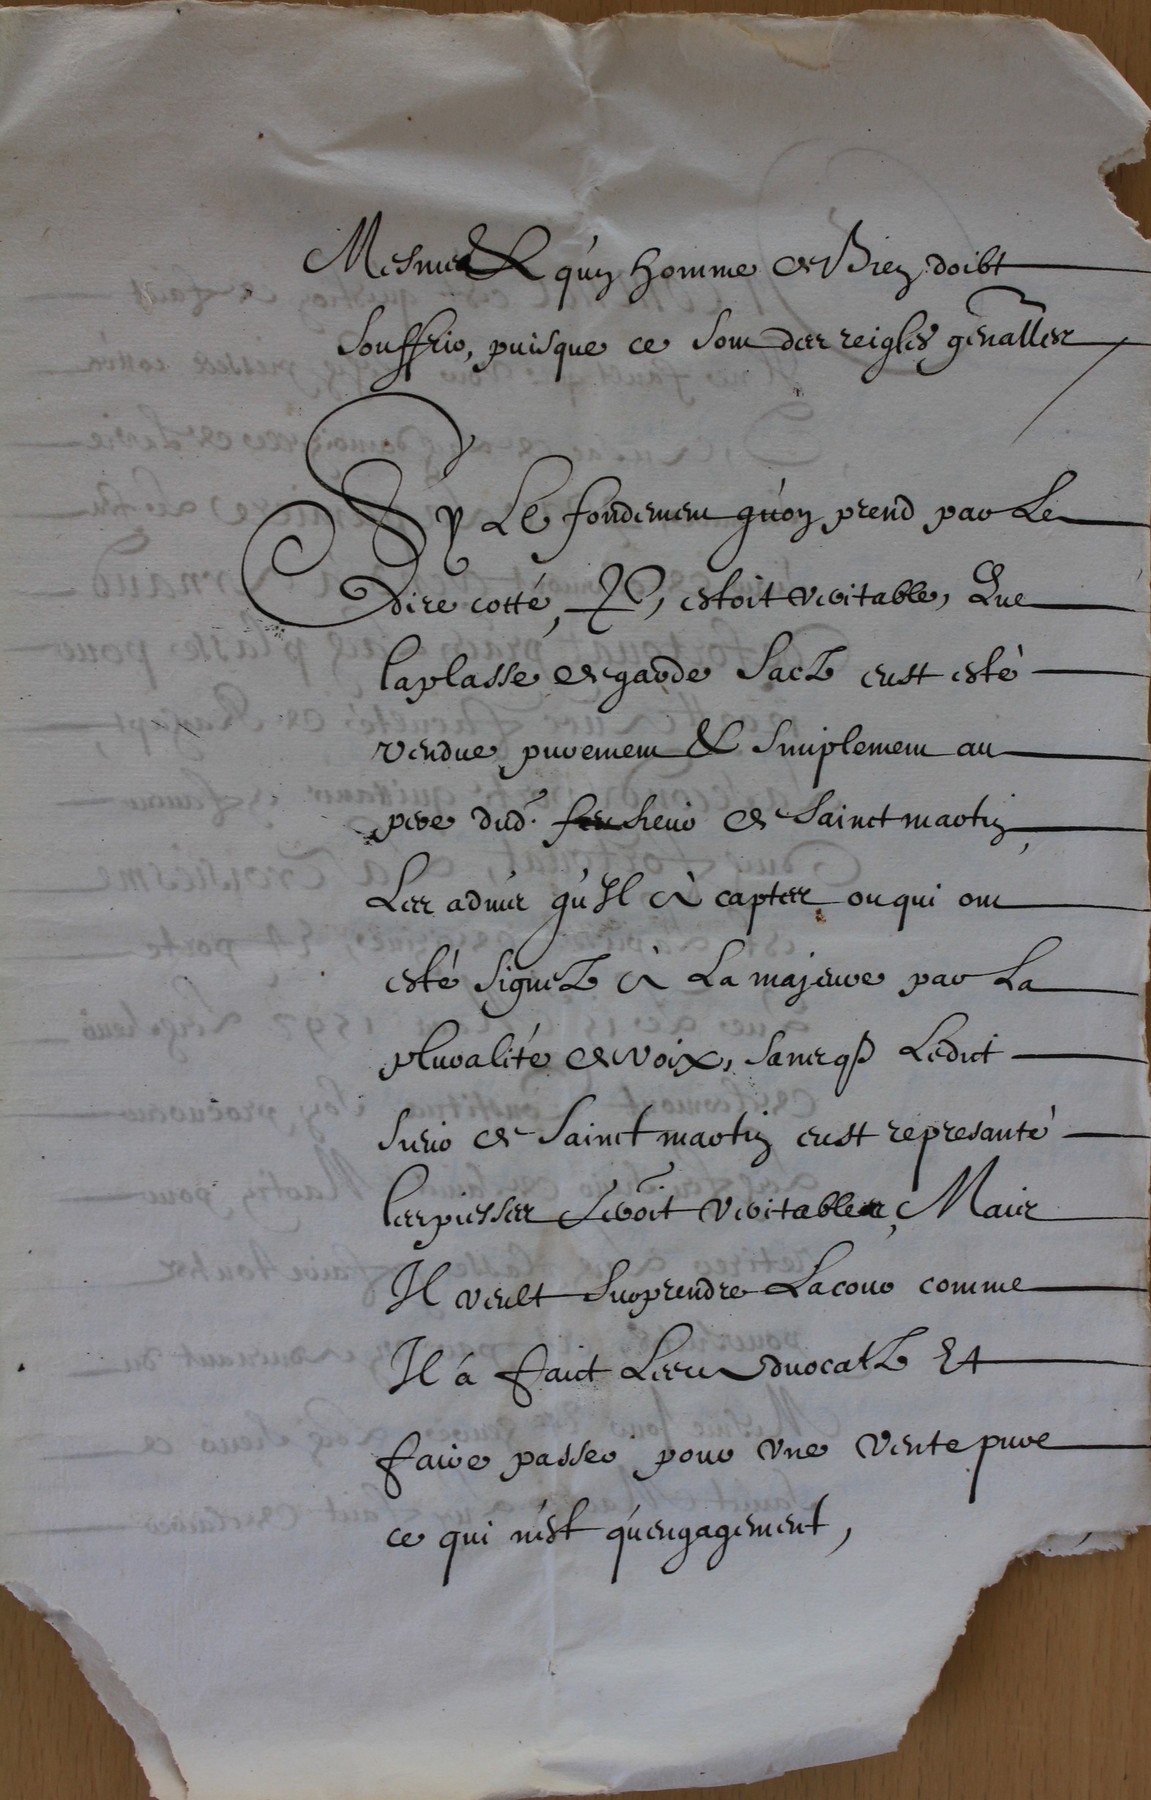 Mesmes & qu'un homme de Bien doibt
souffrir, puisque ce sont des reigles genalles
Sy Le fondement qu'on prend par Le
Dire cotté, estoit veritable, Que
la plasse de garde Sacz eust esté
vendue purement & simplement au
pere dud. sieur de Sainct martin,
Les advis qu'Il à captez ou qui ont
esté signez à La majeure par La
pluralité de voix, sans q Ledict
sieur de Sainct martin eust representé
les piesses seroit veritables, Mais
Il veult surprendre La cour comme
Il á faict Les advocatz Et
faire passer pour une vente pure
ce qui n'est qu'engagement,